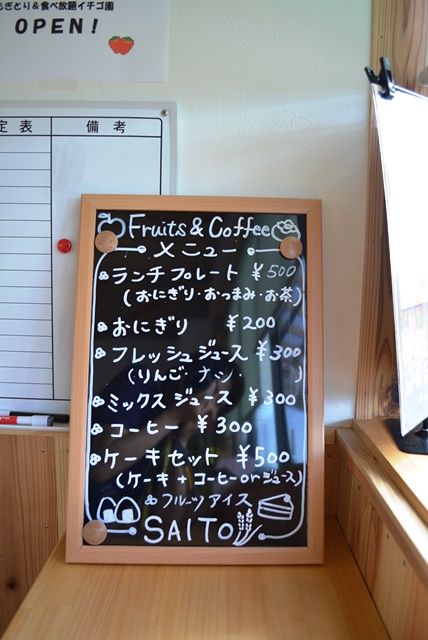 もぎとり＆食べ放題イチゴ園
OPEN!
定表 備考
Fruits & Coffee
メニュー
ランチプレート ¥500
(おにぎり・おつまみ・お茶)
おにぎり ¥200
フレッシュジュース ¥300
(りんご・ナシ )
ミックスジュース ¥300
コーヒー ¥300
ケーキセット ¥500
(ケーキ + コーヒー or ジュース)
フルーツアイス
SAITO